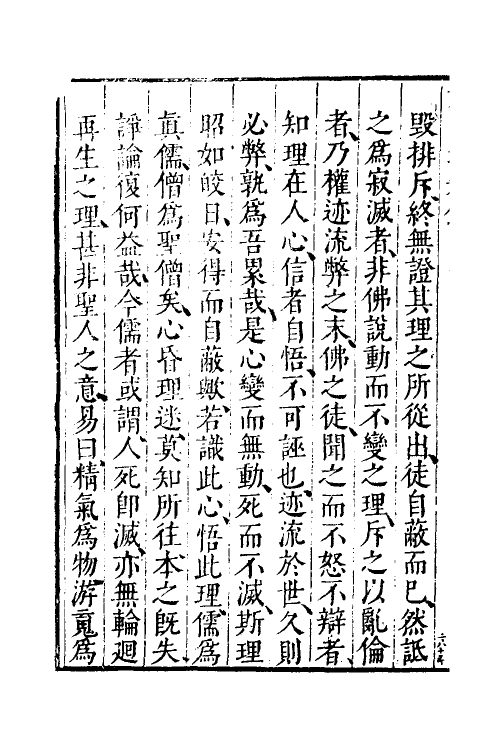 毀排斥、終無證其理之所從出、徒自蔽而已、然詆
之爲寂滅者、非佛說動而不變之理、斥之以亂倫
者、乃權迹流弊之末、佛之徒、聞之而不怒不辯者、
知理在人心、信者自悟、不可誣也、迹流於世、久則
必弊、孰爲吾累哉、是心變而無動、死而不滅、斯理
昭如皎日、安得而自蔽歟、若識此心、悟此理、儒爲
眞儒、僧爲聖僧矣、心昏理迷、莫知所徃、本之旣失、
諍論復何益哉、今儒者或謂、人死卽滅、亦無輪迴
再生之理、甚非聖人之意、易曰、精氣爲物、游䰟爲